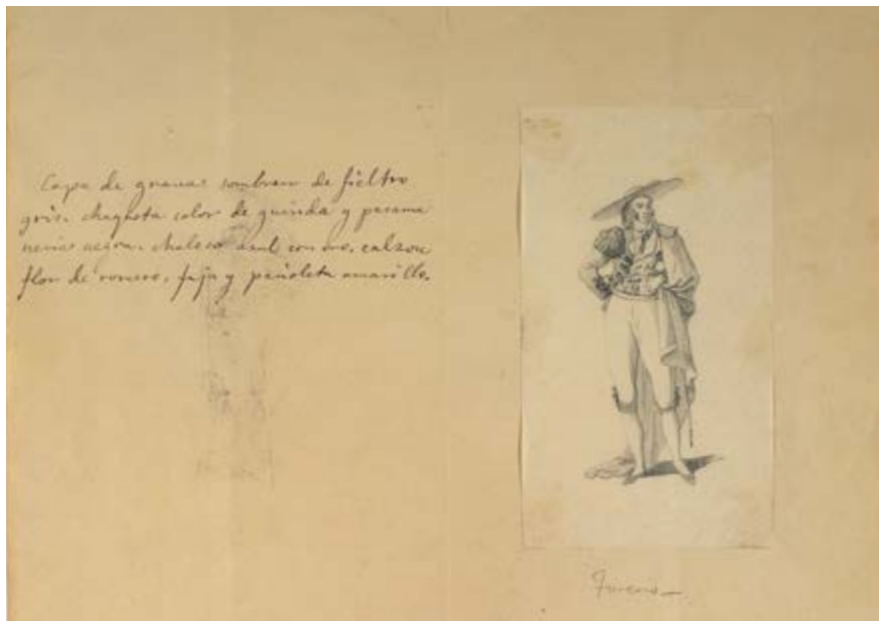 Capa de grana: sombrero de fieltro
gris. chaqueta color de guinda y pasama
neria negra. chaleco azul con oro. calzon
flor de romero. faja y pañoleta amarillo.